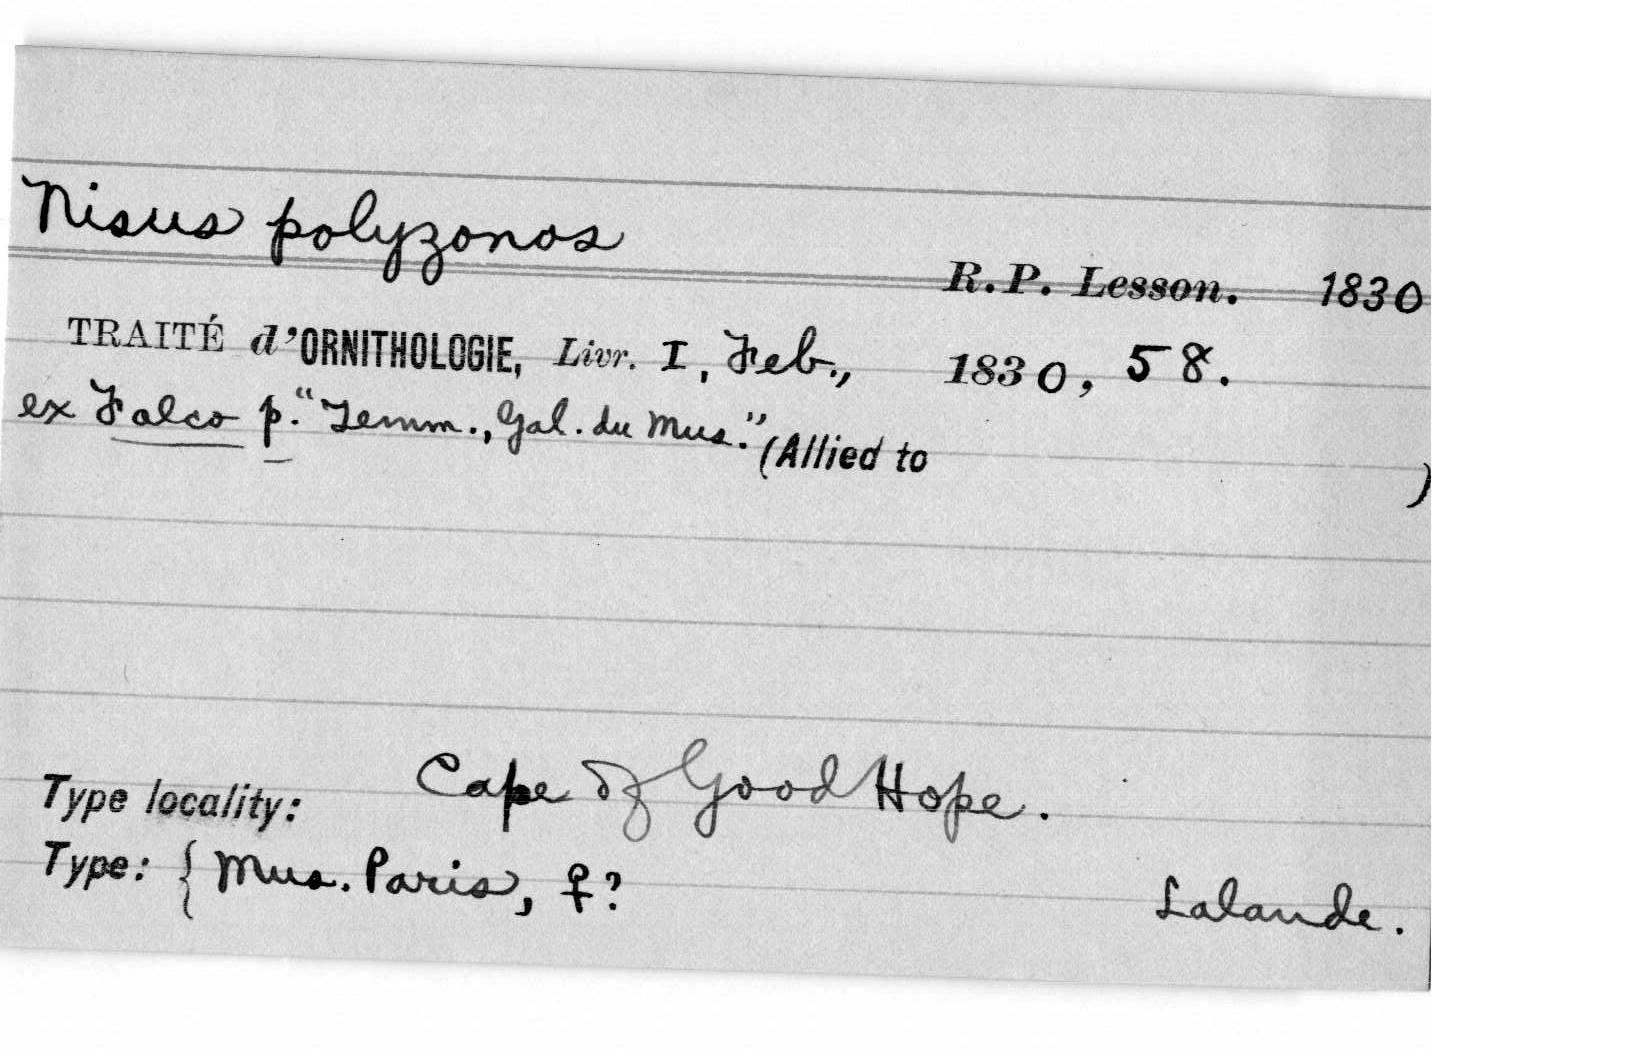 Nisus polyzonos
R.P. Lesson. 1830
TRAITÉ d'ORNITHOLOGIE, Livr. I, Feb., 1830, 58.
ex Falco p. "Temm., Gal. du Mus." (Allied to )
Type locality: Cape of Good Hope.
Type: { Mus. Paris, ♀? Lalande.